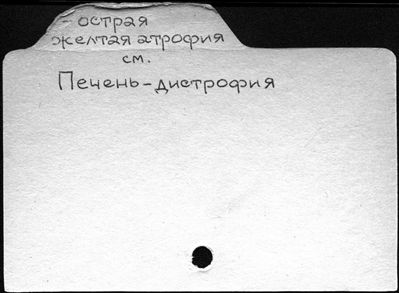 - острая
желтая атрофия
см.
Печень-дистрофия